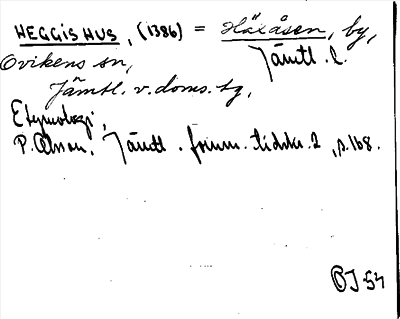 HEGGISHUS, (1386) = Häxåsen, by,
Ovikens sn, Jämtl. l.
Jämtl. v. doms. tg,
Etymologi,
P. Olsson, Jämtl. fornm. tidskr. 2, s. 168.
OJ 54